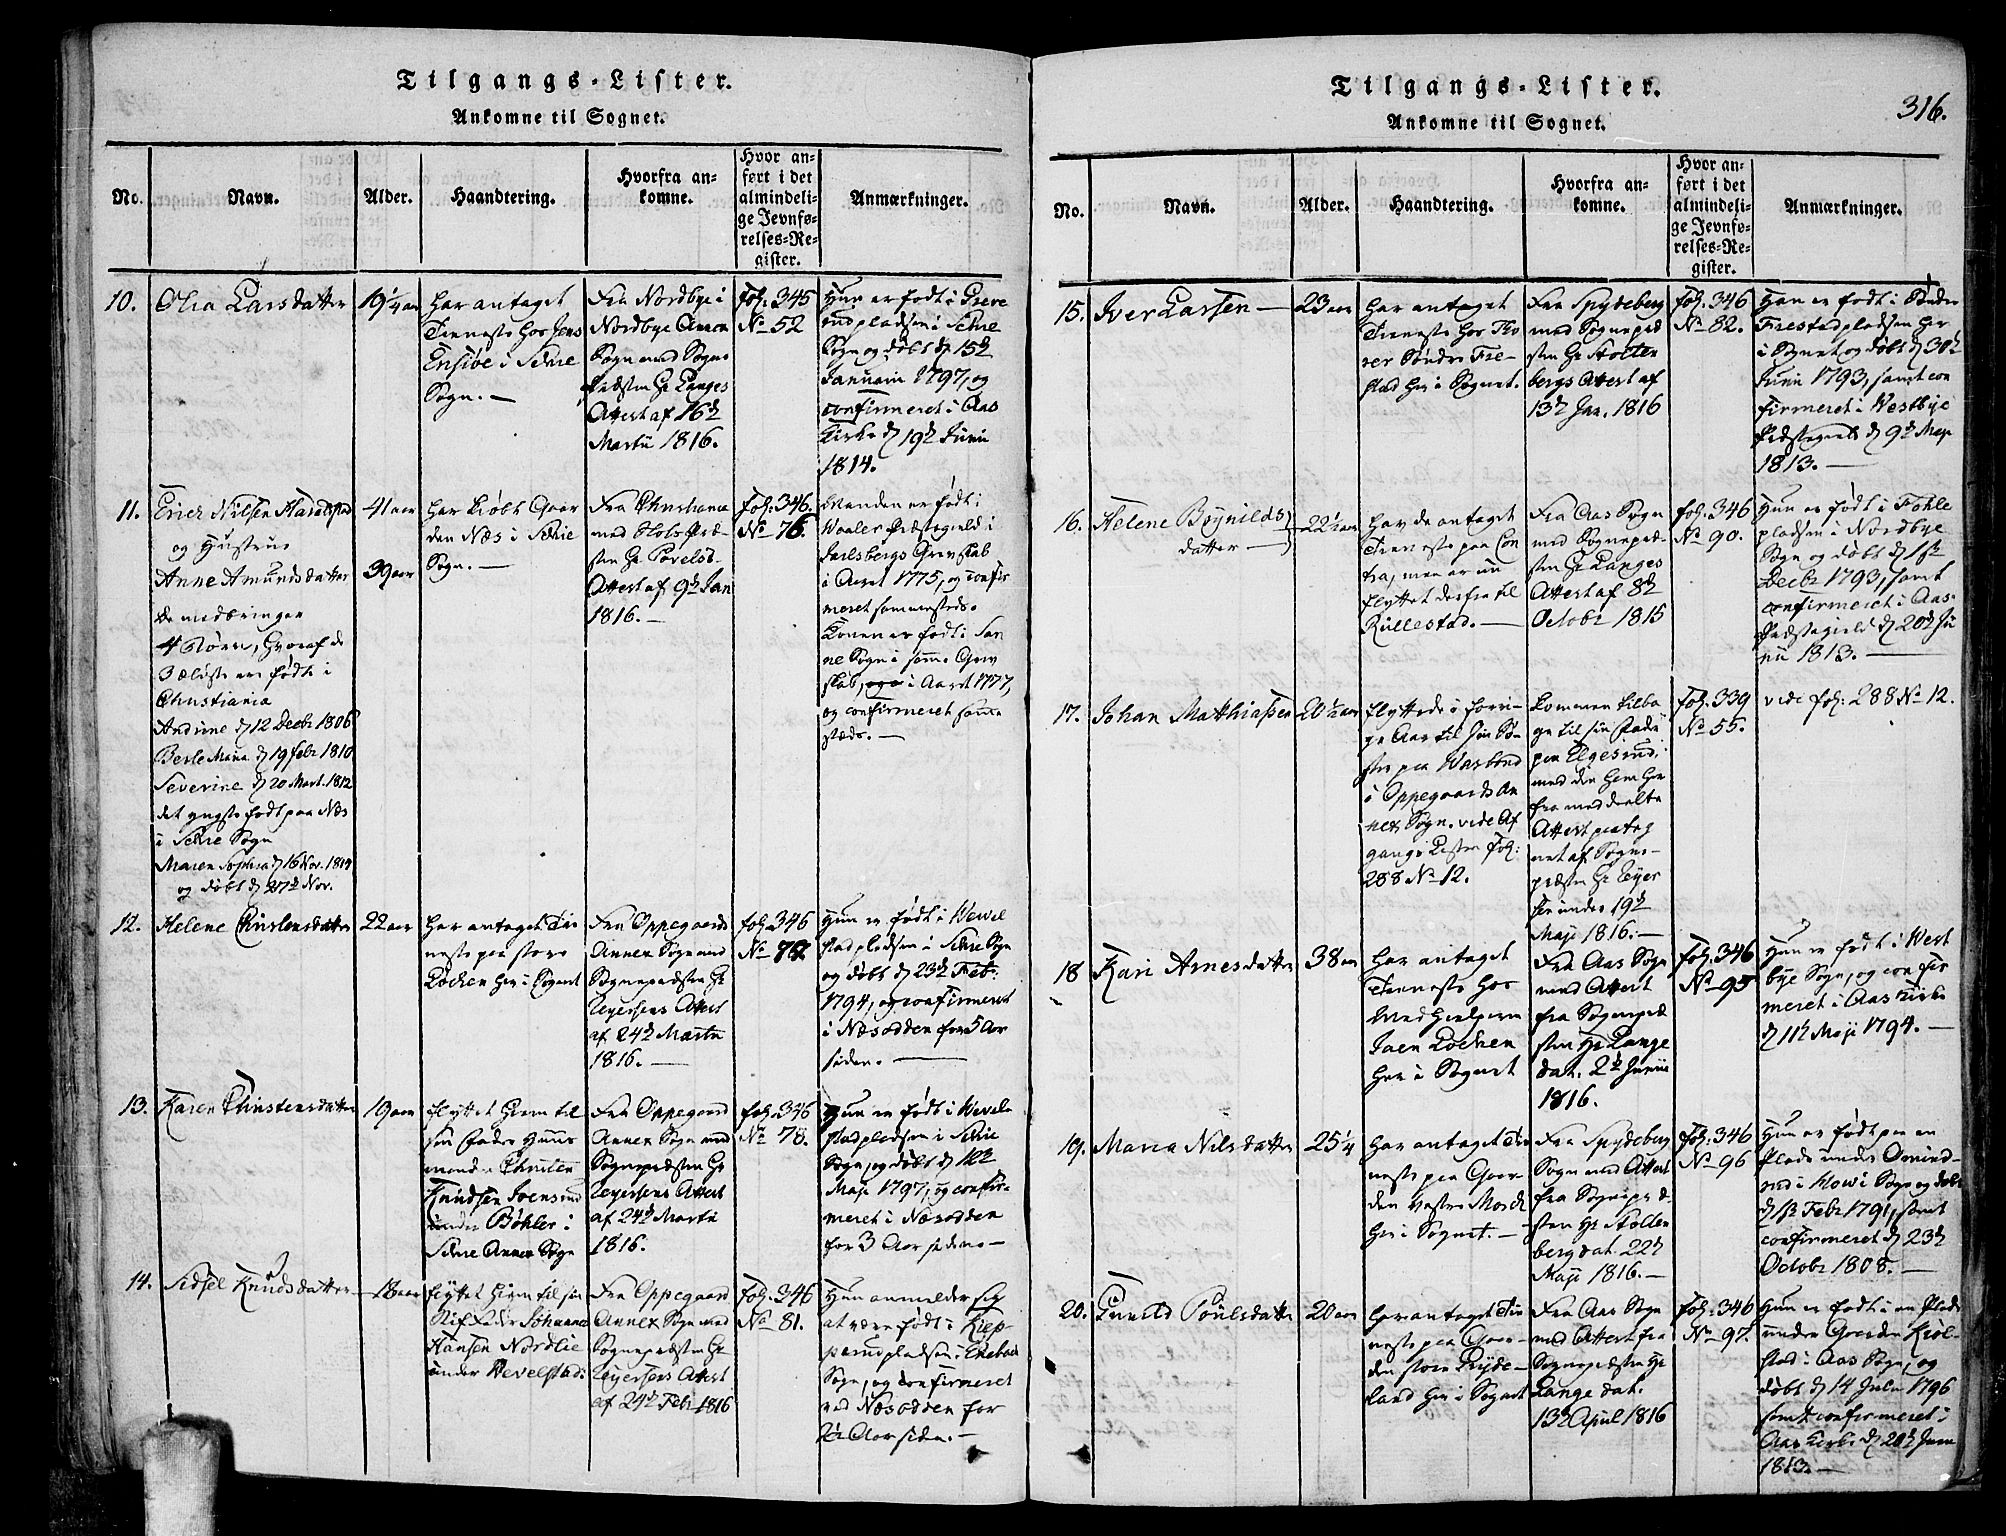 Tilgangs-Lister.
Ankomne til Sognet.
No.
Navn.
Alder.
Haandtering.
Hvorfra an-
komne.
Hvor an-
ført i det
almindeli-
ge Jevnfø-
relses-Re-
gister.
Anmærkninger.
10.
Olia Larsdatter
19 1/4 aar
har antaget
Tieneste hos Jens
Ensiøe i Schie
Sogn. —
Fra Nordbye i
Nordbye Annex
Sogn med Sogne
Præsten Hr Langes
Attest af 16d
Martii 1816.
Fol: 345
No 52
Hun er født i
Schie
Sogn og døbt d 15d
Januarii 1797, og
confirmeret i Aas
Kirke d 19d Junii
1814.
11.
Erich Nilsen Haralstad
og Hustrue
Anne Amundsdatter
De medbringer
4 Børn, hvoraf de
3 ældste ere født i
Christiania
Andrine d 12 Decbr 1806
Berte Maria d 19 febr 1810
Severine d 20 Mart. 1812
det yngste født paa Næs
i Schie Sogn
Maren Sophia d 16 Nov. 1814
og døbt d 27d Nov.
41 aar
39 aar
har kiøbt Gaar
den Næs i Schie
Sogn. —
Fra Christiania
med Slotspræ
sten Hr Povels:
Attest af 9d Jan
1816. —
fol: 346.
No 76.
Manden er født i
Waaler Præstegield i
Jarlsbergs Grevskab
i Aaret 1775, og confir
meret sammesteds.
Konen er født i San
ne Sogn i samme Grev
skab, i Aaret 1777,
og confirmeret samme
steds. —
12.
Helene Christensdatter
22 aar
har antaget Tie
neste paa store
Lochen her i Sognet
Fra Oppegaards
Annex Sogn med
Sognepræsten Hr
Leyersens Attest
af 24d Martii
1816. —
fol: 346
No 78
Hun er født i Wevel
stadpladsen i Schie Sogn
og døbt d 23d Feb:
1794, og confirmeret
i Næsodden for 5 Aar
siden. —
13.
Karen Christensdatter
19 aar
flyttet hiem til
sin Fader Huus
manden Christen
Knudsen Ioensrud
under Bøhler i
Schie Annex Sogn
Fra Oppegaard
Annex Sogn med
Sognepræsten Hr
Leyersens Attest
af 24d Martii
1816.
fol: 346
No 78.
Hun er født i Wevel
stadpladsen i Schie
Sogn, og døbt d 12d
Maji 1797, og confir-
meret i Næsodden
for 3 Aar siden. —
14.
Sidsel Knudsdatter
18 aar
flyttet hiem til sin
Stiffader Johannes
Hansen Nordlie
under Wevelstad:
Fra Oppegaard
Annex Sogn med
Sognepræsten Hr
Leyersens Attest
af 24d Febr 1816
Fol: 346
No 81.
Hun anmelder sig
at være født i Kiep-
perudpladsen i Enebach
Sogn, og confirmeret
ved Næsodden for
2 1/2 Aar siden. —
Tilgangs-Lister.
Ankomne til Sognet.
316.
No.
Navn.
Alder.
Haandtering.
Hvorfra an-
komne.
Hvor an-
ført i det
almindeli-
ge Jevnfø-
relses-Re-
gister.
Anmærkninger.
15.
Iver Larssen —
23 aar
har antaget
Tieneste hos Tho
rer Søndre Fre-
stad her i Sognet.
Fra Spydeberg
med Sognepræ
sten Hr Stolten
bergs Attest af
13d Jan. 1816
fol: 346
No 82.
Han er født i Søndre
Frestadpladsen her
i Sognet og døbt d 30d
Junii 1793, samt con
firmeret i Westbye
Præstegield d 9d Maji
1813. —
16.
Helene Brynilds
datter —
22 1/2 aar
havde antaget
Tieneste paa Con
tra, men er nu
flyttet derfra til
Kullestad. —
Fra Aas Sogn
med Sognepræ-
sten Hr Langes
Attest af 8d
Octobr 1815
fol: 346
No 90.
Hun er født i Fohle
pladsen i Nordbye
Sogn og døbt d 1ste
Decbr 1793, samt
confirmeret i Aas
Præstegield d 20d Ju
nii 1813. —
17.
Johan Matthiassen
20 1/2 aar
flyttede i forri-
ge Aar til sin Sø
ster paa Wasbond
i Oppegaards An
nex Sogn. vide Af
gangs Listen Fol:
288 No 12.
kommen tilba
ge til sin Fader
paa Elgesrud,
med den ham her
fra meddeelte
Attest paateg
net af Sogne-
præsten Hr Leyer
sen under 19d
Maji 1816. —
Fol: 339
No 55.
vide fol: 288 No 12.
18
Kari Arnesdatter
38 aar
har antaget
Tieneste hos
Medhielperen
Joen Lochen
her i Sognet
Fra Aas Sogn
med Attest
fra Sognepræ
sten Hr Lange
dat. 2d Junii
1816.
fol: 346
No 95
Hun er født i West
bye Sogn, og confir
meret i Aas Kirke
d 11d Maji 1794. —
19.
Maria Nilsdatter
25 1/4
har antaget Tie
neste paa Gaar-
den Vestre Moch
her i Sognet. —
Fra Spydeberg
Sogn med Attest
fra Sognepræ-
sten Hr Stolten
berg dat. 22d
Maji 1816. —
Fol: 346
No 96
Hun er født paa en
Plads under
i Howi Sogn og døbt
d 13 Febr 1791, samt
confirmeret d 23d
Octobr 1808. —
20.
Gunild Poulsdatter
20 aar
har antaget Tie
neste paa Gaar-
den store Ryde-
land her i Sognet
Fra Aas Sogn
med Attest fra
Sognepræsten Hr
Lange dat.
13d April 1816
Fol: 346
No 97.
Hun er født i en Plads
under Gaarden Krøl-
stad i Aas Sogn, og
døbt d 14 Julii 1796
samt confirmeret i
Aas Kirke d 20d Junii
1813. —